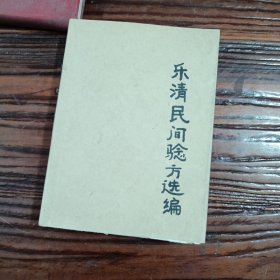 乐清民间验方选编